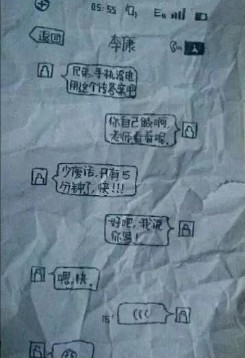 05:55
返回
李康
兄弟,手机没电
用这个传答案吧
你自己做啊
老师看着呢.
少废话,只有15
分钟了,快!!!
好吧,我说
你写!
嗯,快.
15"